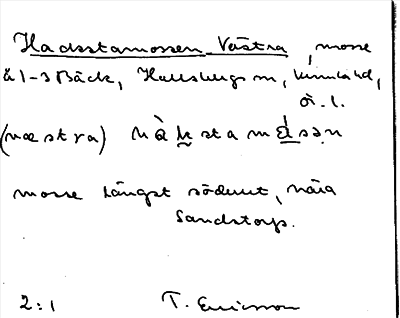 Hadsstamossen Västra, mosse
å 1-3 Bäck, Hallsbergs sn, Kumla hd,
ö. l.
(væstra) hàkstamɷ́sən
mosse längst söderut, nära
Sandstorp.
2:1 T. Ericsson